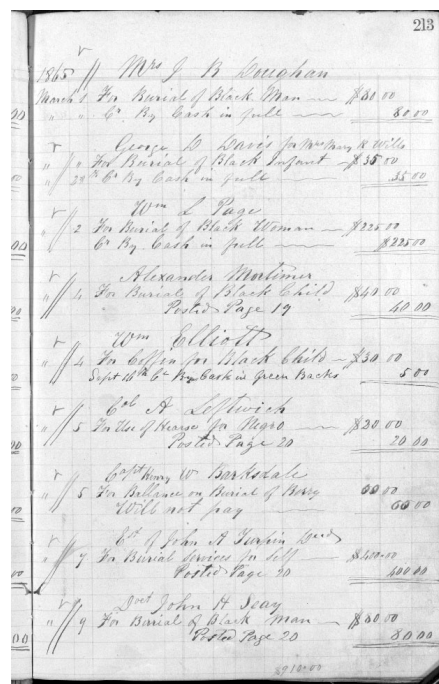 213
1865 Mrs J R Loughan
March 1 For Burial of Black Man $80.00
" " Cr By Cash in full 80.00
George D Davis for Mrs Mary R Wills
" " For Burial of Black Infant $35.00
" 28th Cr By Cash in full 35.00
Wm L Page
" 2 For Burial of Black Woman $225.00
Cr By Cash in full $225.00
Alexander Mortimer
" 4 For Burial of Black Child $40.00
Posted Page 19 40.00
Wm Elliott
" 4 For Coffin for Black Child $30.00
Sept 16th Cr By Cash in Green Backs 5.00
Col A Leftwich
" 5 For Use of Hearse for Negro $20.00
Posted Page 20 20.00
Capt Henry W Barksdale
" 5 For Ballance on Burial of 60.00
Will not pay 60.00
Est of John A Turpin Decd
" 7 For Burial Services for Self $400.00
Posted Page 20 400.00
Doct John H Seay
" 9 For Burial of Black Man $80.00
Posted Page 20 80.00